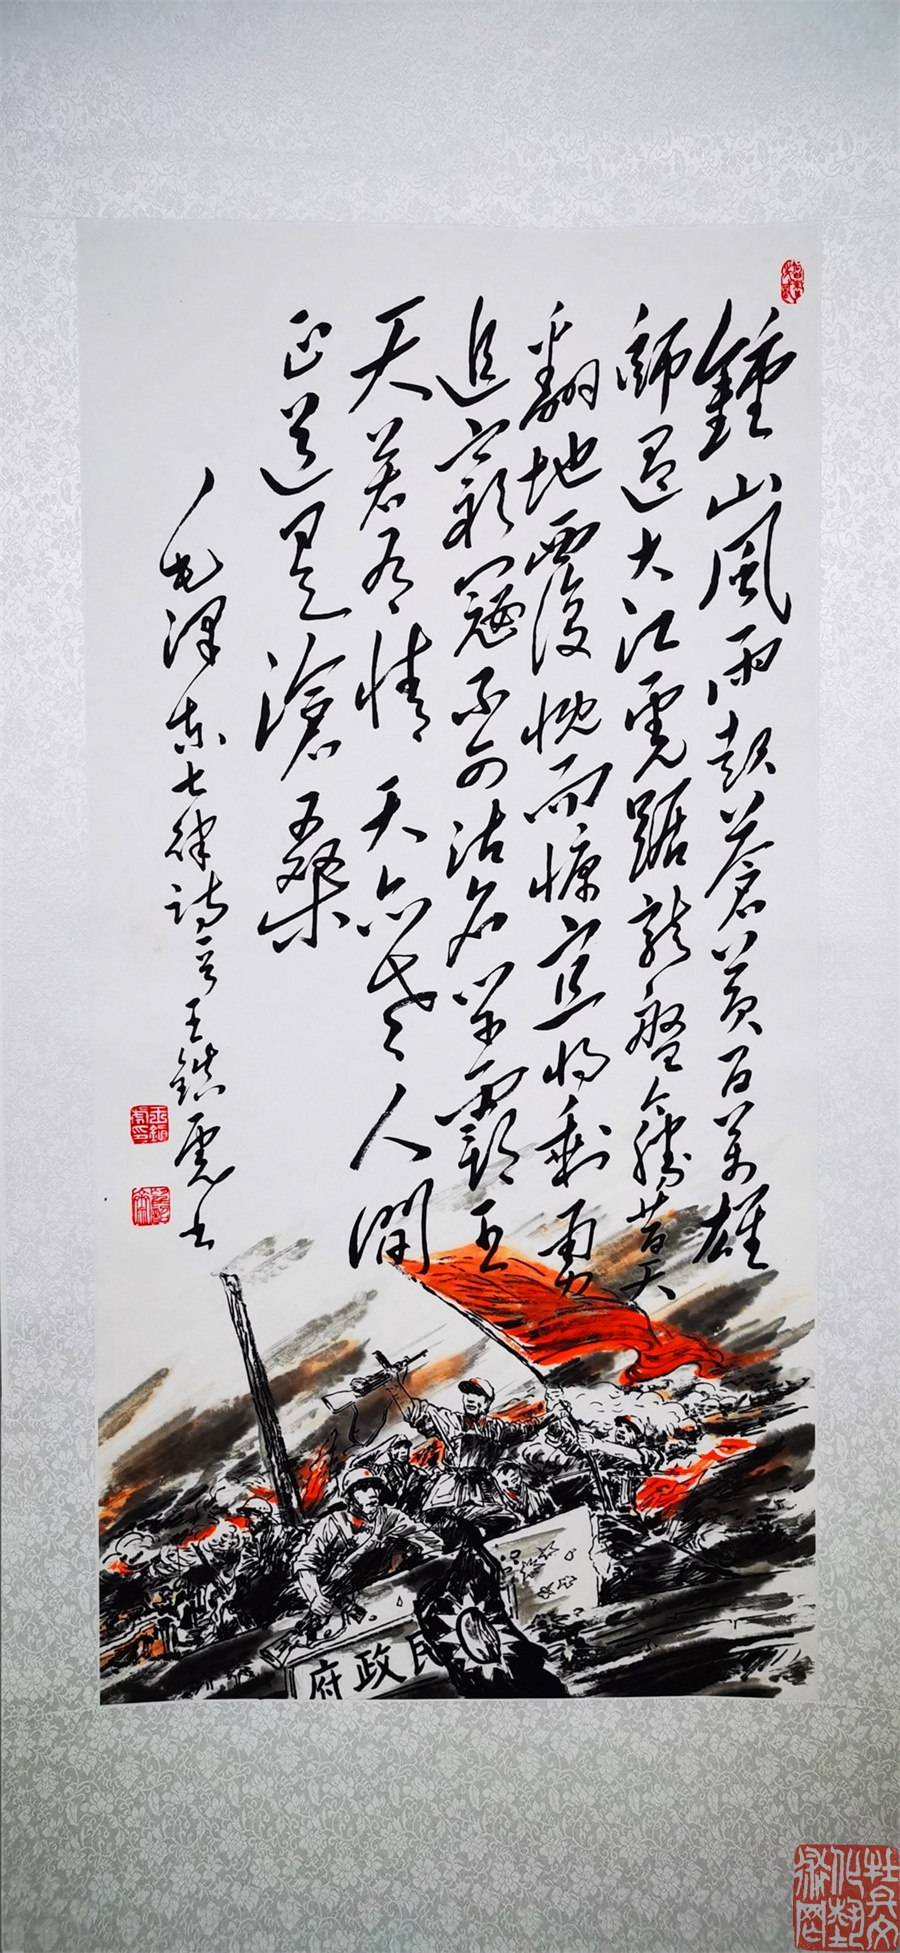 鍾山風雨起蒼黃百萬雄
師過大江虎踞龍盤今勝昔天
翻地覆慨而慷宜將剩勇
追窮寇不可沽名學霸王
天若有情天亦老人間
正道是滄桑
毛澤東七律詩一首王鎮虎書
府政民